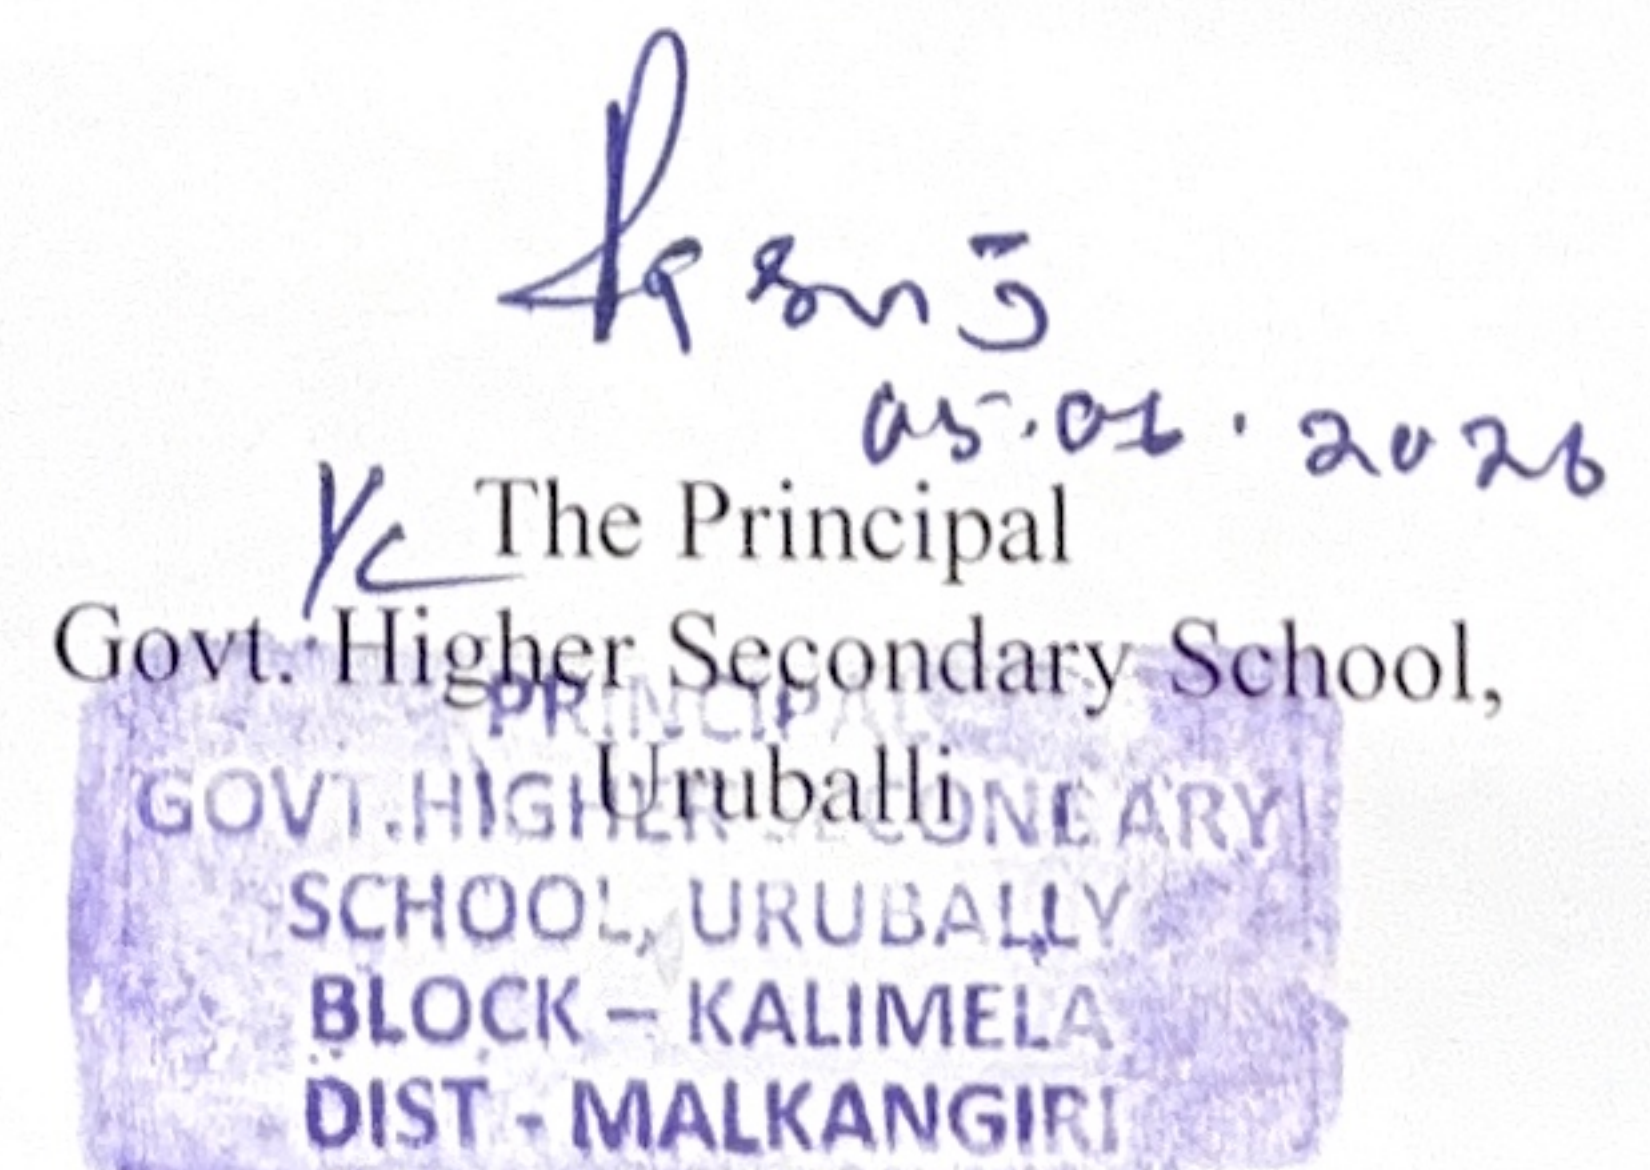 05.01.2026
I/c The Principal
Govt. Higher Secondary School,
Uruballi
PRINCIPAL
GOVT.HIGHER SECONDARY
SCHOOL, URUBALLY
BLOCK – KALIMELA
DIST - MALKANGIRI